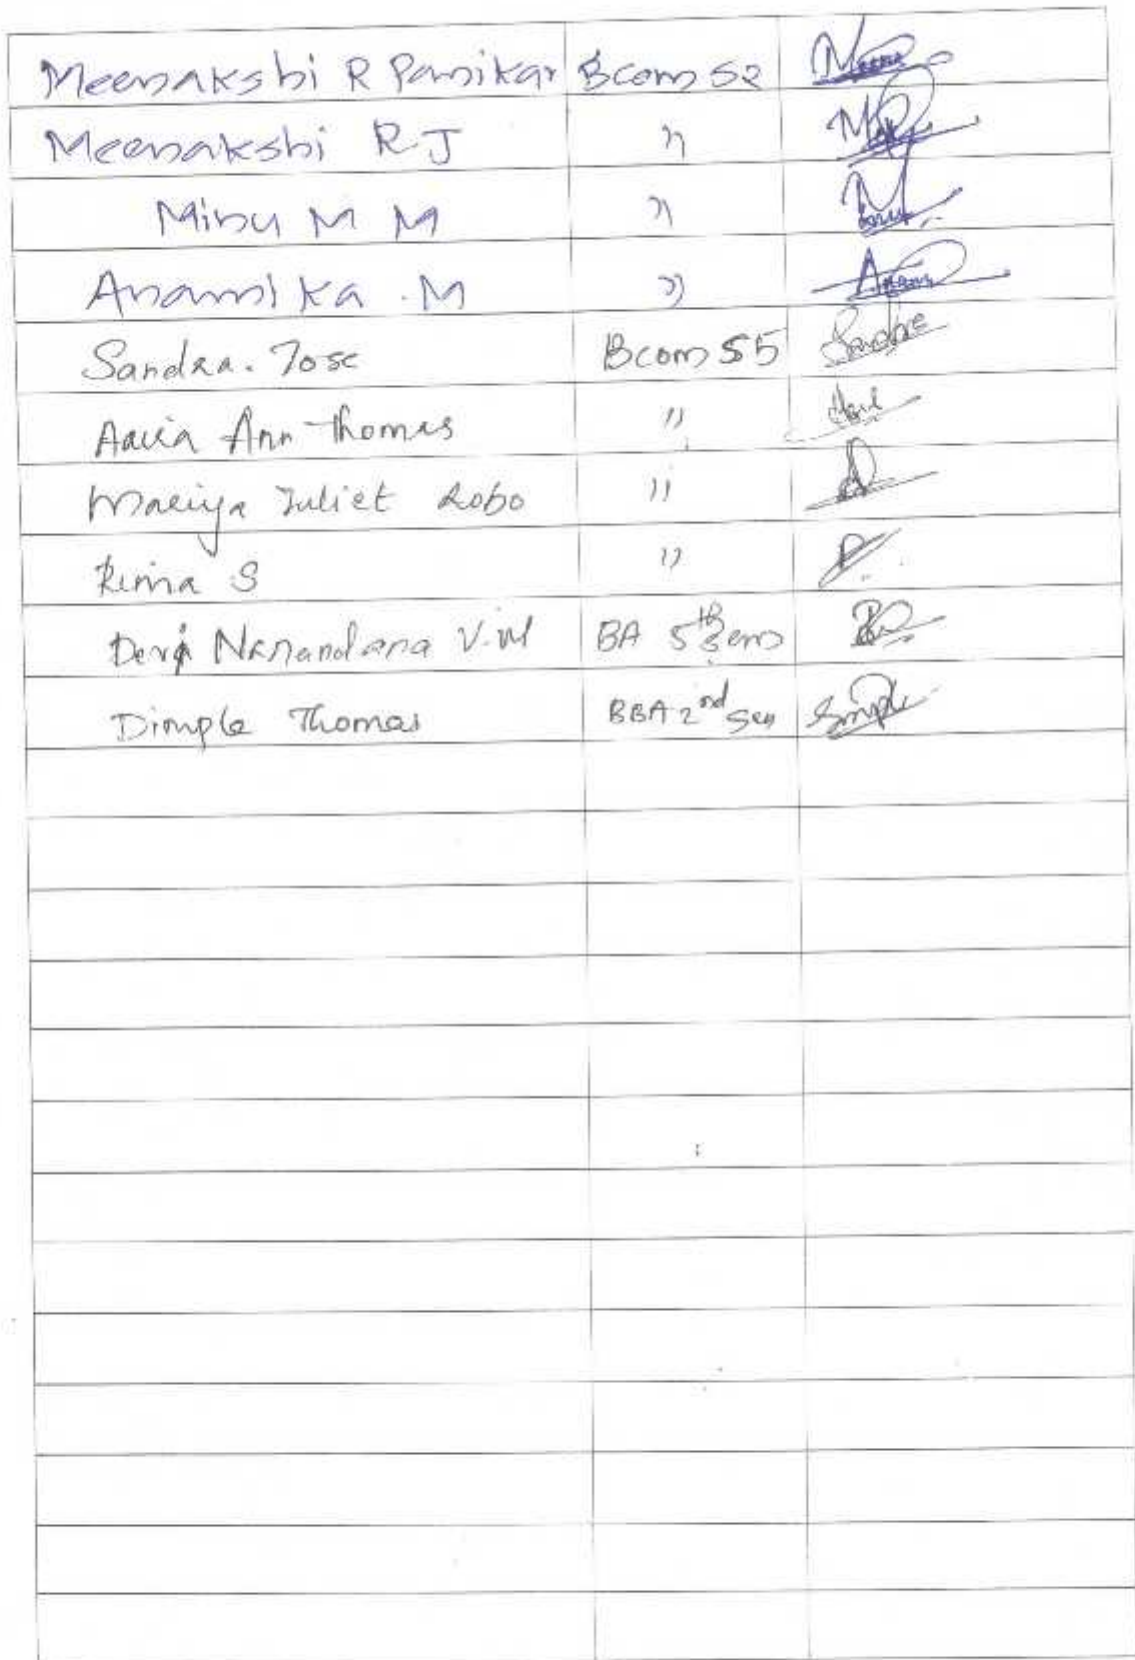 Meenakshi R Panikar Bcom S2 Meena
Meenakshi R J "
Minu M M "
Anamika .M " Anamika
Sandra. Jose Bcom S5 Sandra
Ann Thomas "
Mariya Juliet Lobo "
Rima S "
Devi Nanandana V.M BA 5th Sem
Dimple Thomas BBA 2nd Sem Dimple